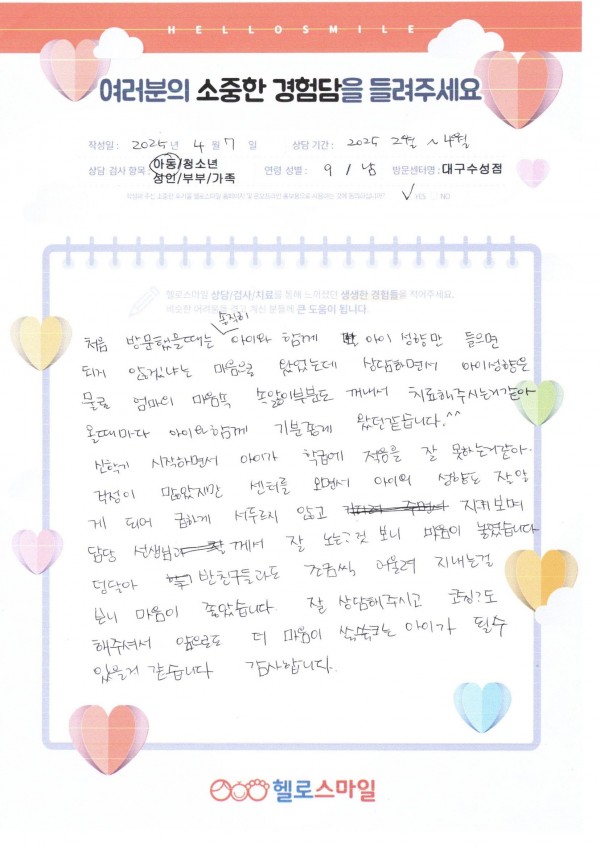 HELLOSMILE
여러분의 소중한 경험담을 들려주세요
작성일 : 2025년 4월 7일 상담 기간 : 2025 2월 ~ 4월
상담 검사 항목 : 아동/청소년 연령 성별 : 9 / 남 방문센터명 : 대구수성점
성인/부부/가족
YES NO
헬로스마일 상담/검사/치료를 통해 느끼셨던 생생한 경험들을 적어주세요.
비슷한 어려움을 겪고 계신 분들께 큰 도움이 됩니다.
솔직히
처음 방문했을때는 아이와 함께 아이 성향만 들으면
되지 않겠냐는 마음으로 왔었는데 상담하면서 아이성향은
물론 엄마의 마음속 속앓이부분도 꺼내서 치료해주시는거같아
올때마다 아이와함께 기분좋게 왔던같습니다.^^
신학기 시작하면서 아이가 학급에 적응를 잘 못하는거같아.
걱정이 많았지만 센터를 오면서 아이의 성향도 잘알
게 되어 급하게 서두르지 않고 지켜보며
담당 선생님 께서 잘 보는것 보니 마음이 놓였습니다
덩달아 반친구들과도 조금씩 어울려 지내는걸
보니 마음이 좋았습니다. 잘 상담해주시고 코칭?도
해주셔서 앞으로도 더 마음이 쑥쑥크는 아이가 될수
있을거 같습니다 감사합니다.
헬로스마일